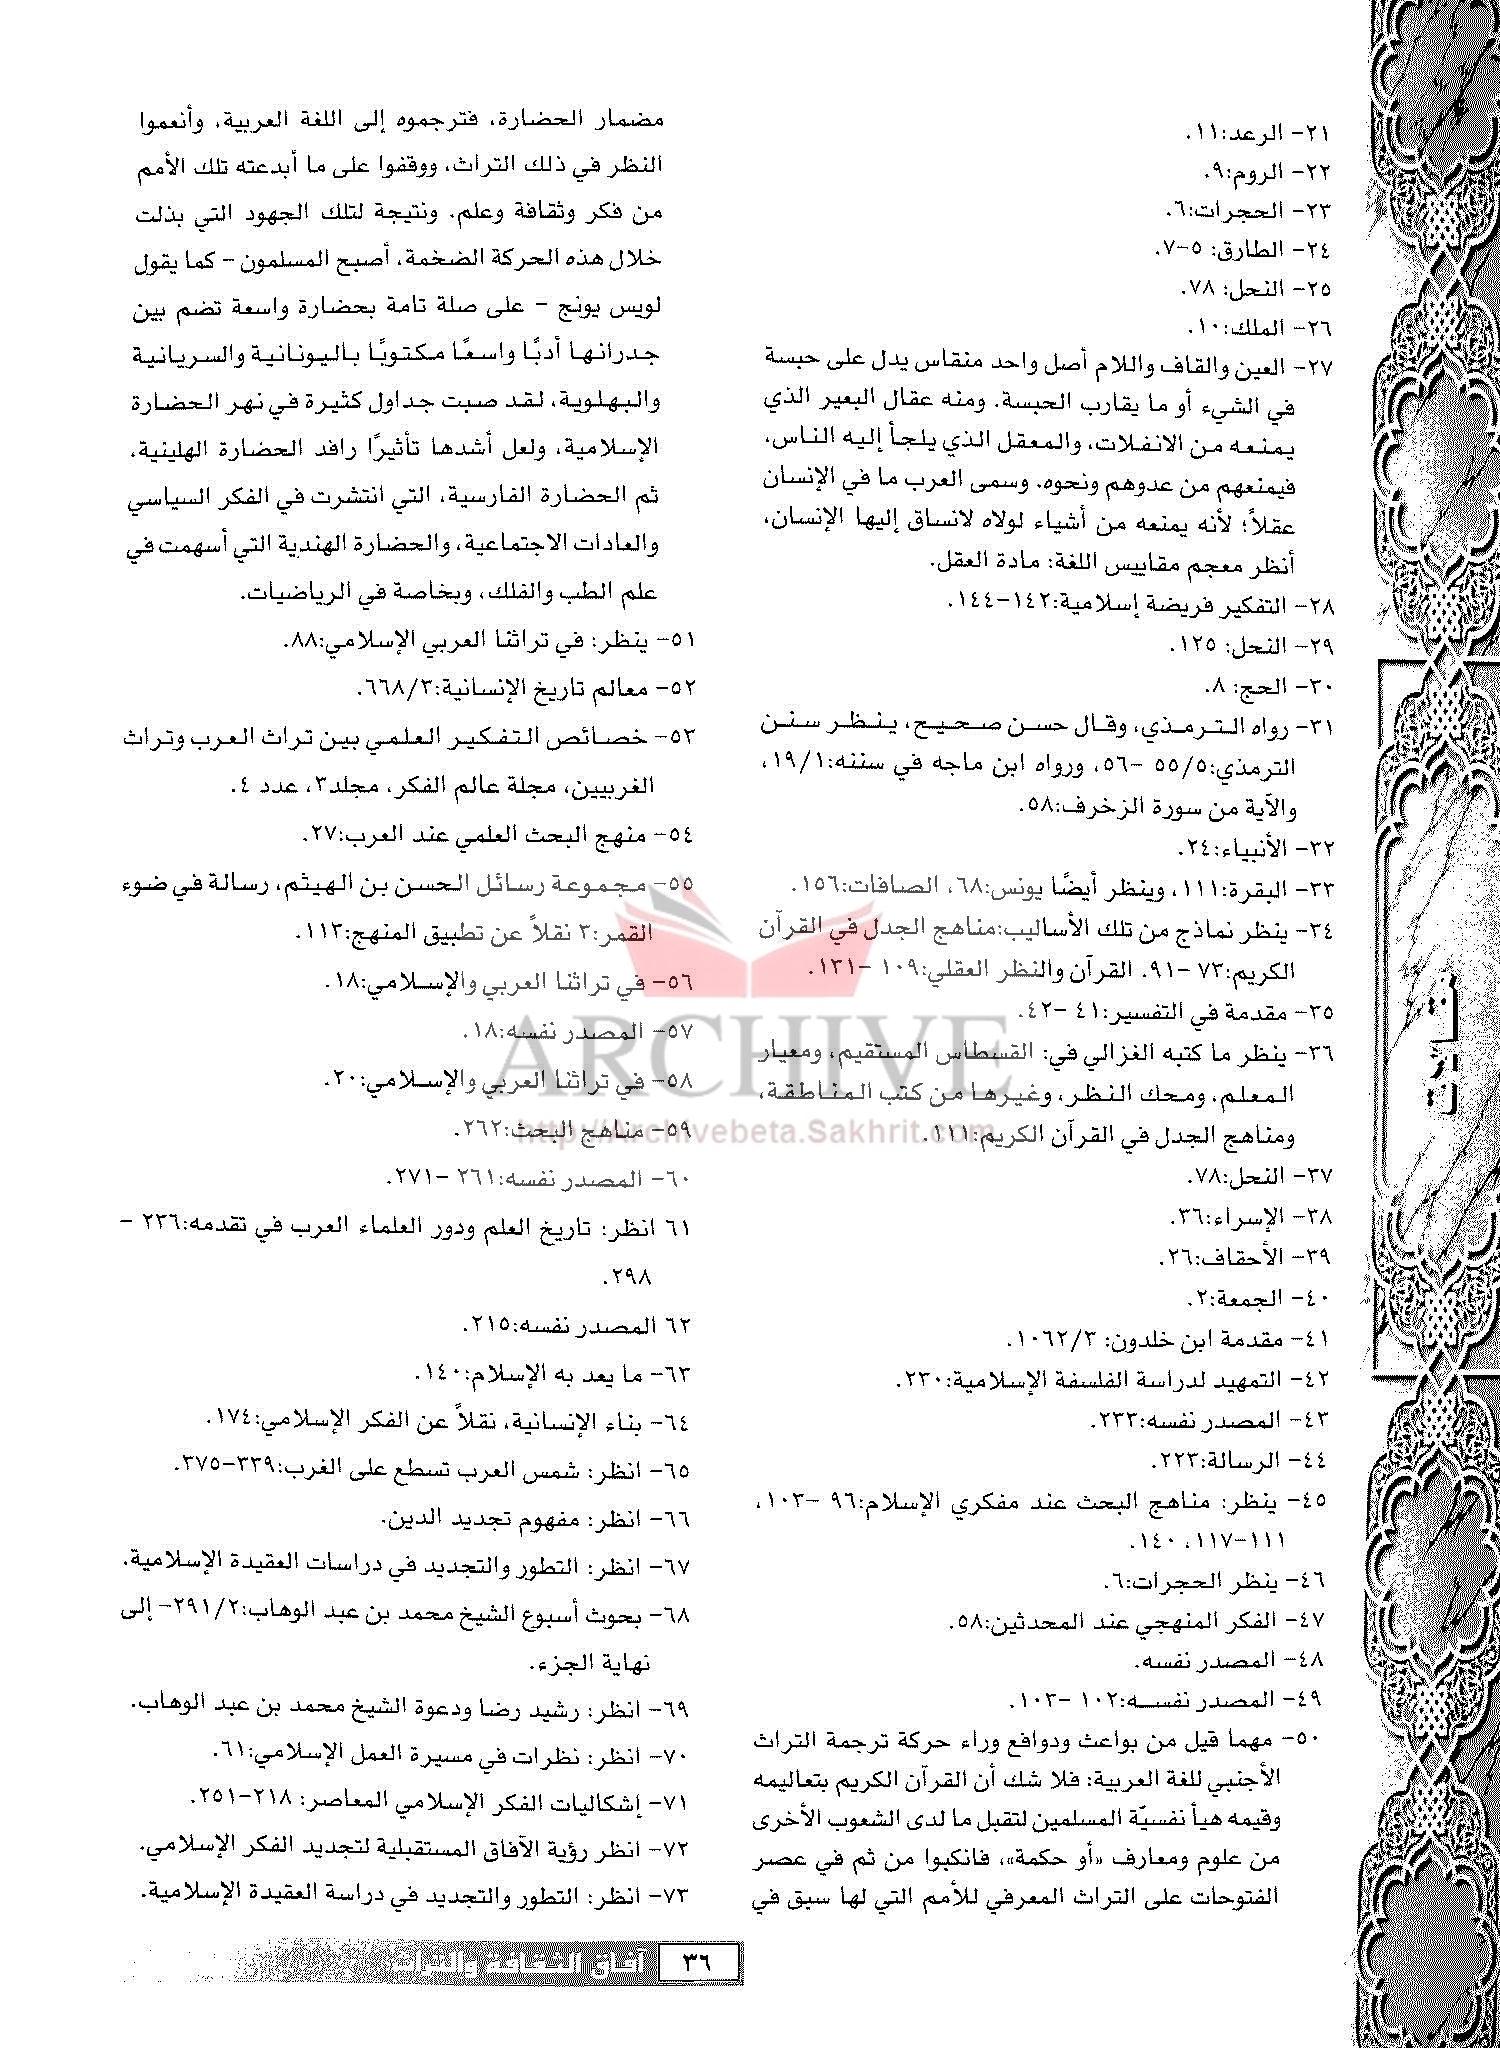 ٢١- الرعد:١١.
٢٢- الروم:٩.
٢٣- الحجرات:٦.
٢٤- الطارق: ٥-٧.
٢٥- النحل: ٧٨.
٢٦- الملك:١٠.
٢٧- العين والقاف واللام أصل واحد منقاس يدل على حبسة
في الشيء أو ما يقارب الحبسة. ومنه عقال البعير الذي
يمنعه من الانفلات، والمعقل الذي يلجأ إليه الناس،
فيمنعهم من عدوهم ونحوه. وسمى العرب ما في الإنسان
عقلاً؛ لأنه يمنعه من أشياء لولاه لانساق إليها الإنسان،
أنظر معجم مقاييس اللغة: مادة العقل.
٢٨- التفكير فريضة إسلامية:١٤٢-١٤٤.
٢٩- النحل: ١٢٥.
٣٠- الحج: ٨.
٣١- رواه الترمذي، وقال حسن صحيح، ينظر سنن
الترمذي:٥٥/٥ -٥٦، ورواه ابن ماجه في سننه:١٩/١،
والآية من سورة الزخرف:٥٨.
٣٢- الأنبياء:٢٤.
٣٣- البقرة:١١١، وينظر أيضًا يونس:٦٨، الصافات:١٥٦.
٣٤- ينظر نماذج من تلك الأساليب:مناهج الجدل في القرآن
الكريم:٧٣ -٩١. القرآن والنظر العقلي:١٠٩ -١٣١.
٣٥- مقدمة في التفسير:٤١ -٤٢.
٣٦- ينظر ما كتبه الغزالي في: القسطاس المستقيم، ومعيار
المعلم، ومحك النظر، وغيرها من كتب المناطقة،
ومناهج الجدل في القرآن الكريم:١١١.
٣٧- النحل:٧٨.
٣٨- الإسراء:٣٦.
٣٩- الأحقاف:٢٦.
٤٠- الجمعة:٢.
٤١- مقدمة ابن خلدون: ١٠٦٢/٣.
٤٢- التمهيد لدراسة الفلسفة الإسلامية:٢٣٠.
٤٣- المصدر نفسه:٢٣٣.
٤٤- الرسالة:٢٢٣.
٤٥- ينظر: مناهج البحث عند مفكري الإسلام:٩٦ -١٠٣،
١١١-١١٧، ١٤٠.
٤٦- ينظر الحجرات:٦.
٤٧- الفكر المنهجي عند المحدثين:٥٨.
٤٨- المصدر نفسه.
٤٩- المصدر نفسه:١٠٢ -١٠٣.
٥٠- مهما قيل من بواعث ودوافع وراء حركة ترجمة التراث
الأجنبي للغة العربية: فلا شك أن القرآن الكريم بتعاليمه
وقيمه هيأ نفسيّة المسلمين لتقبل ما لدى الشعوب الأخرى
من علوم ومعارف «أو حكمة»، فانكبوا من ثم في عصر
الفتوحات على التراث المعرفي للأمم التي لها سبق في
مضمار الحضارة، فترجموه إلى اللغة العربية، وأنعموا
النظر في ذلك التراث، ووقفوا على ما أبدعته تلك الأمم
من فكر وثقافة وعلم. ونتيجة لتلك الجهود التي بذلت
خلال هذه الحركة الضخمة، أصبح المسلمون - كما يقول
لويس يونج - على صلة تامة بحضارة واسعة تضم بين
جدرانها أدبًا واسعًا مكتوبًا باليونانية والسريانية
والبهلوية، لقد صبت جداول كثيرة في نهر الحضارة
الإسلامية، ولعل أشدها تأثيرًا رافد الحضارة الهلينية،
ثم الحضارة الفارسية، التي انتشرت في الفكر السياسي
والعادات الاجتماعية، والحضارة الهندية التي أسهمت في
علم الطب والفلك، وبخاصة في الرياضيات.
٥١- ينظر: في تراثنا العربي الإسلامي:٨٨.
٥٢- معالم تاريخ الإنسانية:٦٦٨/٣.
٥٣- خصائص التفكير العلمي بين تراث العرب وتراث
الغربيين، مجلة عالم الفكر، مجلد٣، عدد ٤.
٥٤- منهج البحث العلمي عند العرب:٢٧.
٥٥- مجموعة رسائل الحسن بن الهيثم، رسالة في ضوء
القمر:٣ نقلاً عن تطبيق المنهج:١١٣.
٥٦- في تراثنا العربي والإسلامي:١٨.
٥٧- المصدر نفسه:١٨.
٥٨- في تراثنا العربي والإسلامي:٢٠.
٥٩- مناهج البحث:٢٦٢.
٦٠- المصدر نفسه:٢٦١ -٢٧١.
٦١ انظر: تاريخ العلم ودور العلماء العرب في تقدمه:٢٣٦ -
٢٩٨.
٦٢ المصدر نفسه:٢١٥.
٦٣- ما يعد به الإسلام:١٤٠.
٦٤- بناء الإنسانية، نقلاً عن الفكر الإسلامي:١٧٤.
٦٥- انظر: شمس العرب تسطع على الغرب:٣٣٩-٣٧٥.
٦٦- انظر: مفهوم تجديد الدين.
٦٧- انظر: التطور والتجديد في دراسات العقيدة الإسلامية.
٦٨- بحوث أسبوع الشيخ محمد بن عبد الوهاب:٢٩١/٢- إلى
نهاية الجزء.
٦٩- انظر: رشيد رضا ودعوة الشيخ محمد بن عبد الوهاب.
٧٠- انظر: نظرات في مسيرة العمل الإسلامي:٦١.
٧١- إشكاليات الفكر الإسلامي المعاصر: ٢١٨-٢٥١.
٧٢- انظر رؤية الآفاق المستقبلية لتجديد الفكر الإسلامي.
٧٣- انظر: التطور والتجديد في دراسة العقيدة الإسلامية.
ARCHIVE
http://Archivebeta.Sakhrit.com
٣٦
آفاق الثقافة والتراث